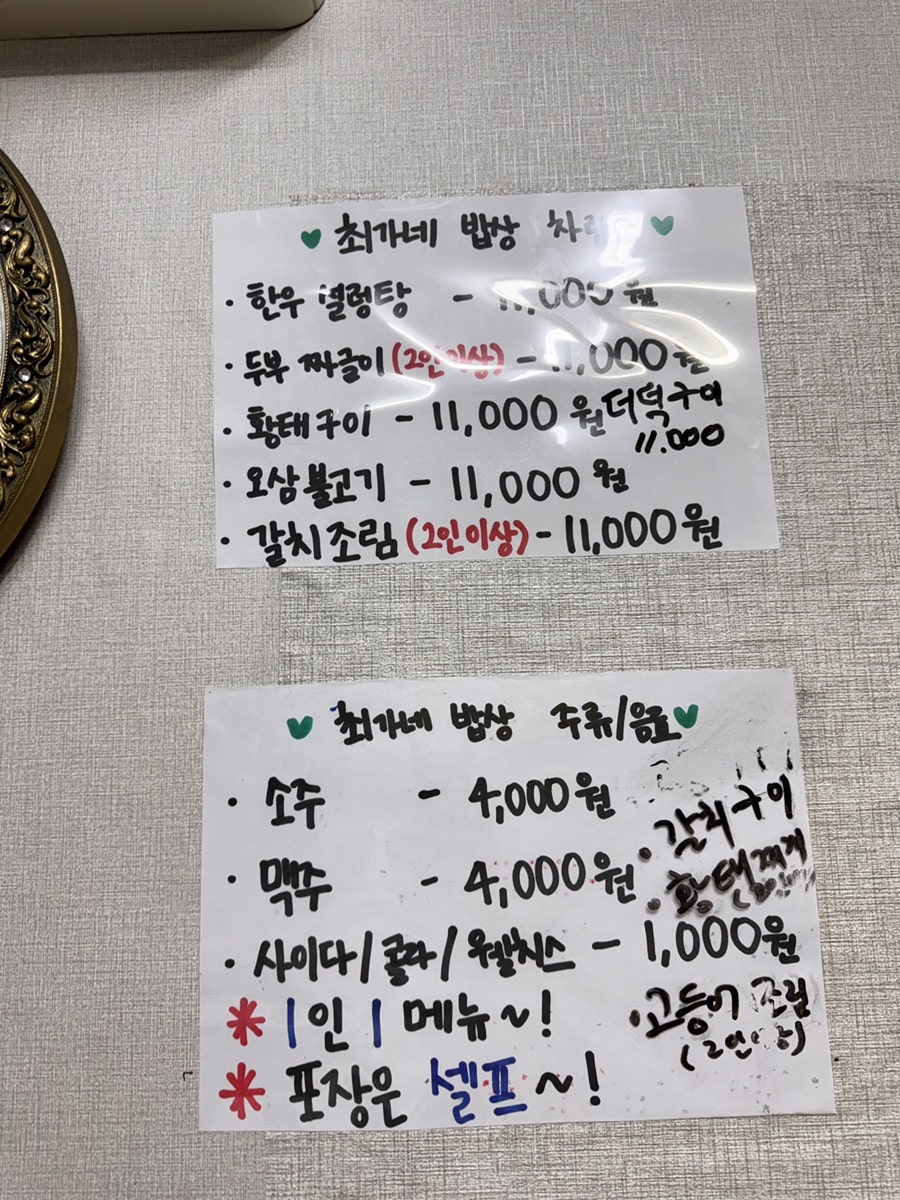 최가네 밥상
· 한우 설렁탕 - 11,000원
· 두부 짜글이 (2인이상) - 11,000원
· 황태구이 - 11,000원
더덕구이
11.000
· 오삼불고기 - 11,000원
· 갈치조림 (2인이상) - 11,000원
최가네 밥상 주류/음료
· 소주 - 4,000원
· 맥주 - 4,000원
· 갈치구이
· 황태찌개
· 사이다/콜라/웰치스 - 1,000원
· 고등어 조림
(2인이상)
* 1인 1 메뉴~!
* 포장은 셀프~!